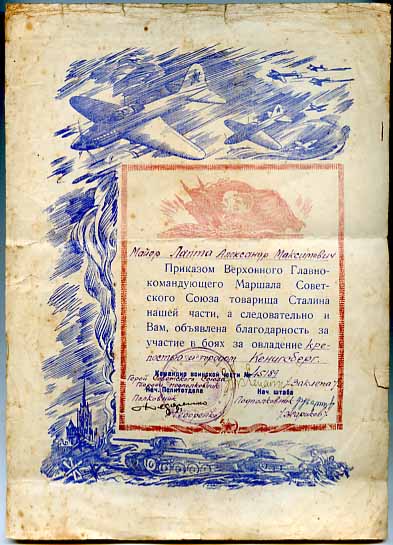 Майор Лапта Александр Максимович
Приказом Верхонного Главно-
командующего Маршала Совет-
ского Союза товарища Сталина
нашей части, а следовательно и
Вам, объявлена благодарность за
участие в боях за овладение кре-
постью и городом Кенигсберг.
Командир воинской части №
Герой Советского Союза
Гвардии подполковник
Нач. Политотдела
Полковник
Нач. штаба
Подполковник